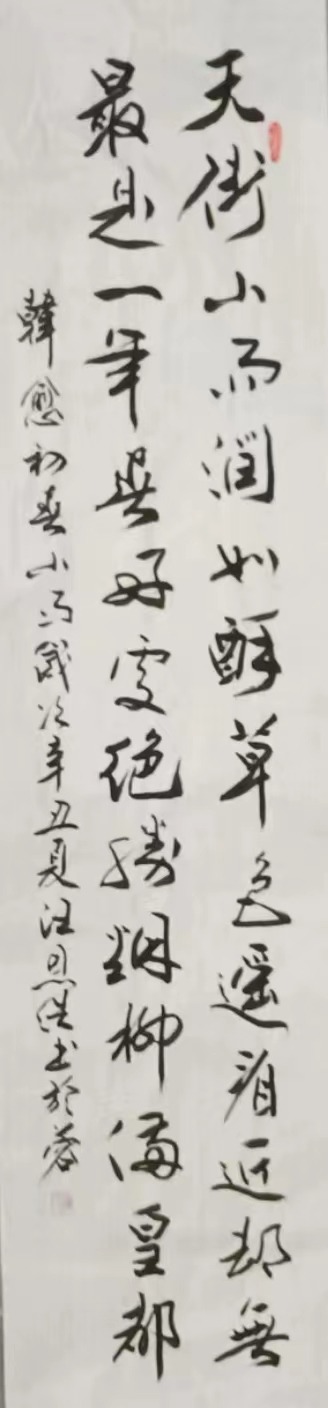 天街小雨潤如酥草色遥看近却無
最是一年春好處絕勝烟柳滿皇都
韓愈初春小雨歲次辛丑夏汪思浩書於蓉